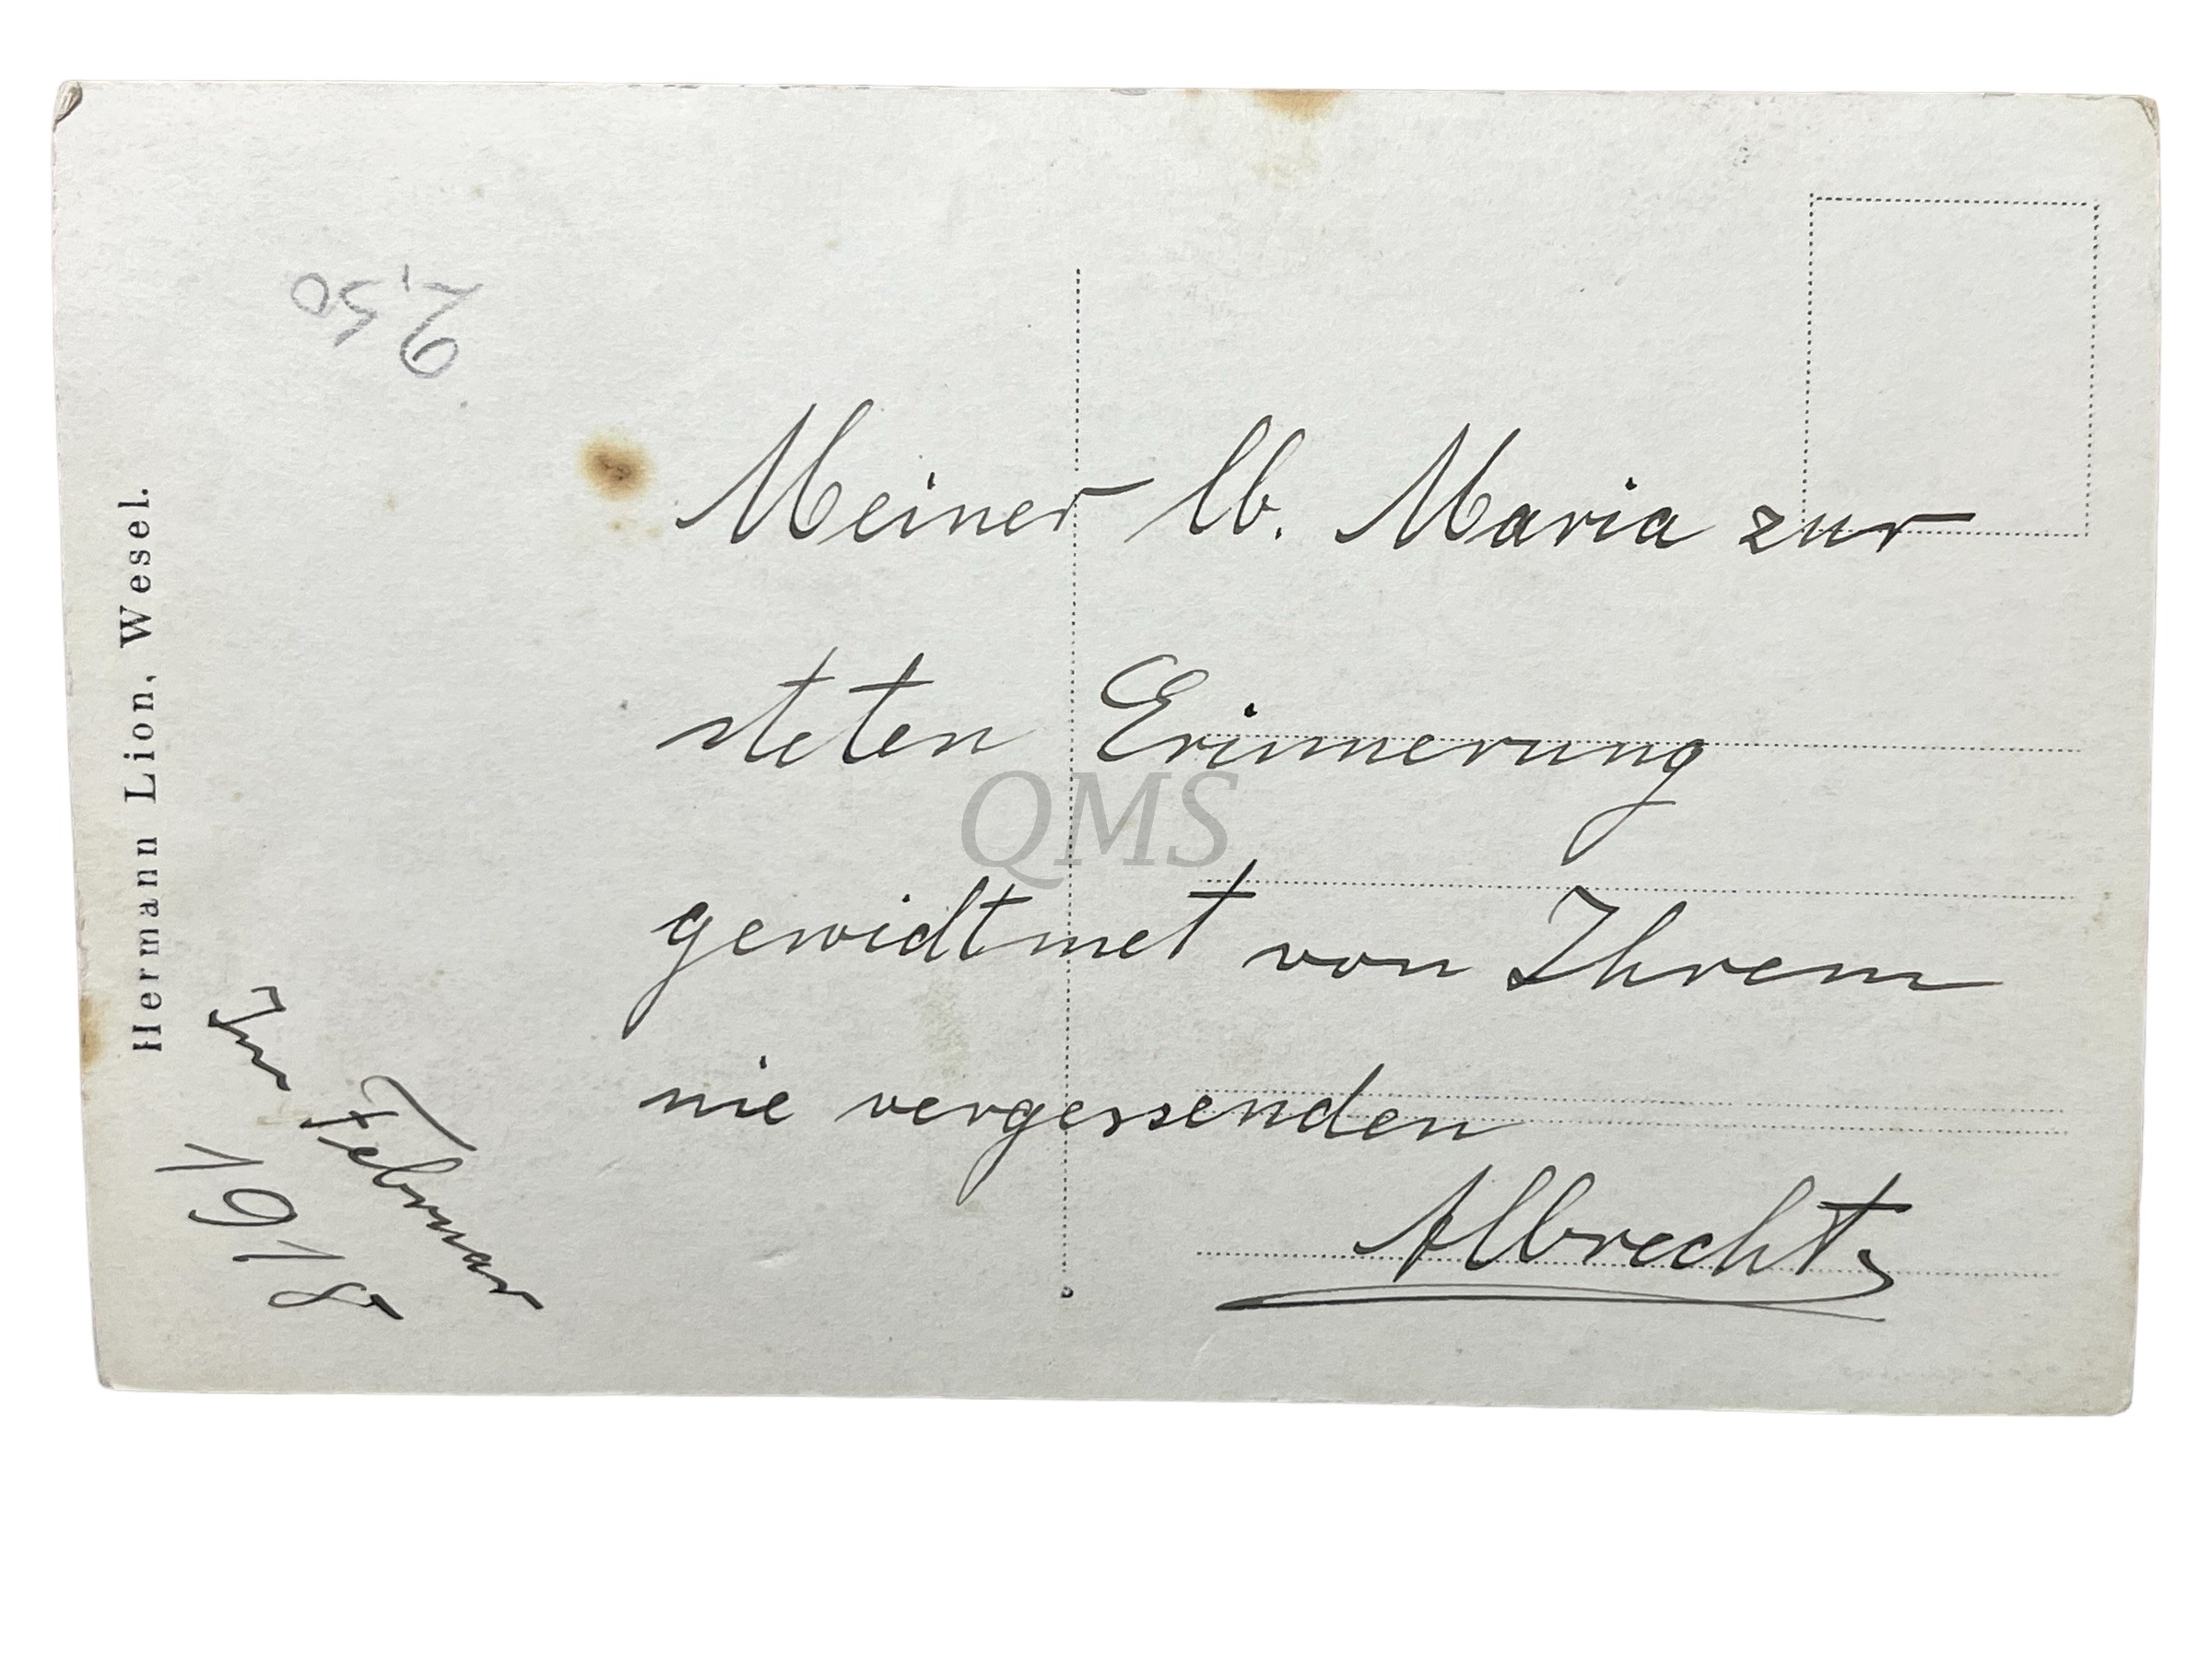 2,50
Meiner lb. Maria zur
steten Erinnerung
gewidtmet von Ihrem
nie vergessenden
Albrecht
Im Februar
1918
Hermann Lion, Wesel.
QMS